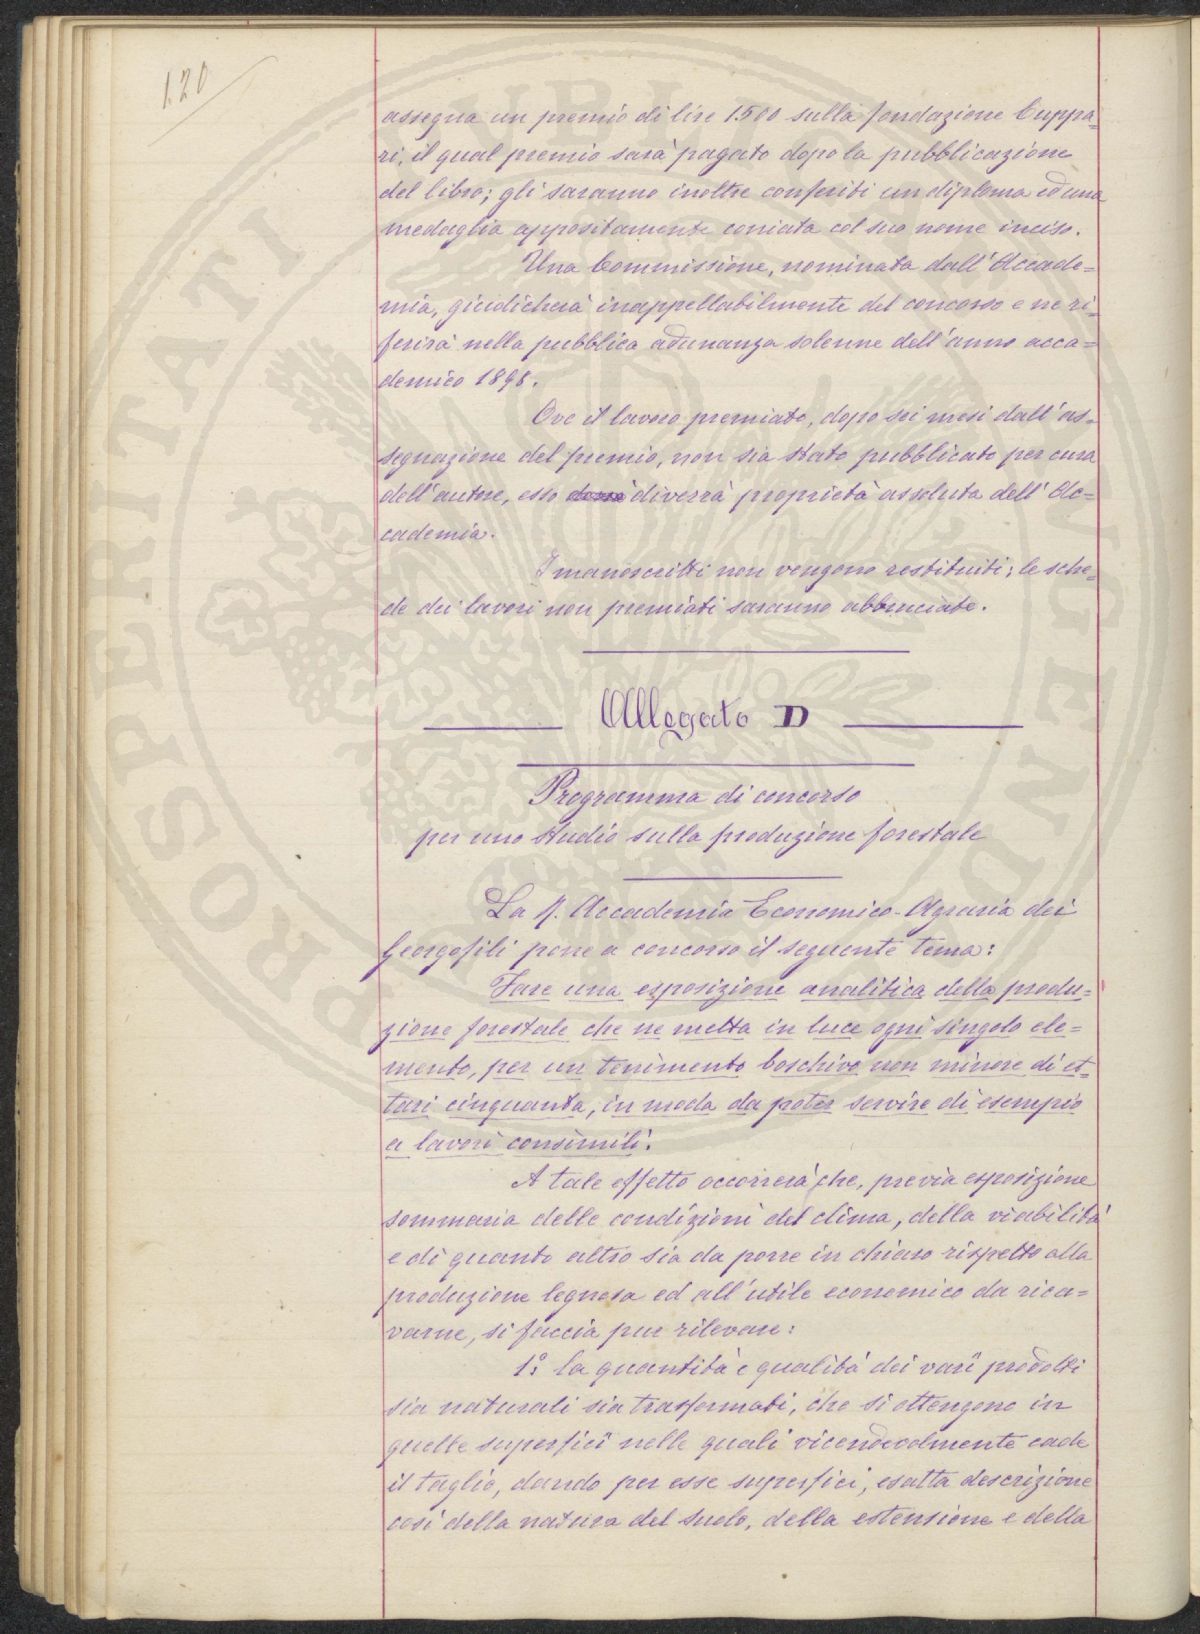 120
assegna un premio di lire 1500 sulla fondazione Cuppa=
ri, il qual premio sarà pagato dopo la pubblicazione
del libro; gli saranno inoltre conferiti un diploma ed una
medaglia appositamente coniata col suo nome inciso.
Una Commissione, nominata dall'Accade=
mia, giudicherà inappellabilmente del concorso e ne ri=
ferirà nella pubblica adunanza solenne dell'anno acca=
demico 1898.
Ove il lavoro premiato, dopo sei mesi dall'as=
segnazione del premio, non sia stato pubblicato per cura
dell'autore, esso diverrà proprietà assoluta dell'Ac=
cademia.
I manoscritti non vengono restituiti; le sche=
de dei lavori non premiati saranno abbruciate.
Allegato D
Programma di concorso
per uno studio sulla produzione forestale
La R. Accademia Economico-Agraria dei
Georgofili pone a concorso il seguente tema:
Fare una esposizione analitica della produ=
zione forestale che ne metta in luce ogni singolo ele=
mento, per un tenimento boschivo non minore di et=
tari cinquanta, in modo da poter servire di esempio
a lavori consimili.
A tale effetto occorrerà che, previa esposizione
sommaria delle condizioni del clima, della viabilità
e di quanto altro sia da porre in chiaro rispetto alla
produzione legnosa ed all'utile economico da rica=
varne, si faccia pur rilevare:
1º: la quantità e qualità dei varii prodotti
sia naturali sia trasformati, che si ottengono in
quelle superficii nelle quali vicendevolmente cade
il taglio, dando per esse superfici, esatta descrizione
così della natura del suolo, della estensione e della
PROSPERITATI PUBLICAE AUGENDAE